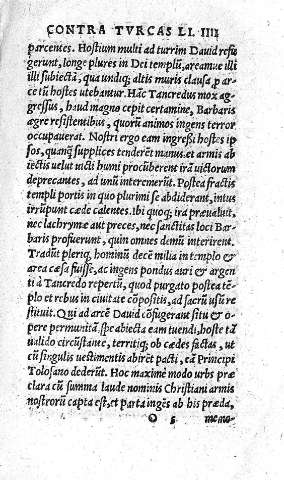 CONTRA TVRCAS LI. IIII
parcentes. Hostium multi ad turrim Dauid refu
gerunt, longe plures in Dei templũ, areamue illi
illi subiectã, qua undiq; altis muris clausa p ar-
ce tũ hostes utebantur. Hãc Tancredus mox ag
gressus, haud magno cepit certamine, Barbaris
ægre resistentibus, quorũ animos ingens terror
occupauerat. Nostri ergo eam ingreßi hostes ip
sos, quanq̃ supplices tenderẽt manus. et armis ab
iectis uelut uicti humi procũberent irã uictorum
deprecantes, ad unũ interemerũt. Postea fractis
templi portis in quo plurimi se abdiderant, intus
irrũpunt cæde calentes. ibi quoq; ira præualuit,
nec lachrymæ aut preces, nec sanctitas loci Bar-
baris profuerunt, quin omnes demũ interirent.
Tradũt pleriq, hominũ decẽ milia in templo &
area cæsa fuisse, ac ingens pondus auri & argen
ti à Tancredo repertũ, quod purgato postea tẽ-
plo et rebus in ciuitate cõpositis, ad sacrũ usũ re
stituit. Qui ad arcẽ Dauid cõfugerant situ & o-
pere permunitã. spe abiecta eam tuendi, hoste tã
ualido circũstante, territiq; ob cædes factas, ut
cũ singulis uestimentis abirẽt pacti, eã Principi
Tolosano dederũt. Hoc maxime modo urbs præ
clara cũ summa laude nominis Christiani armis
nostrorũ capta est, et parta ingẽs ab his præda,
O 5 memo-